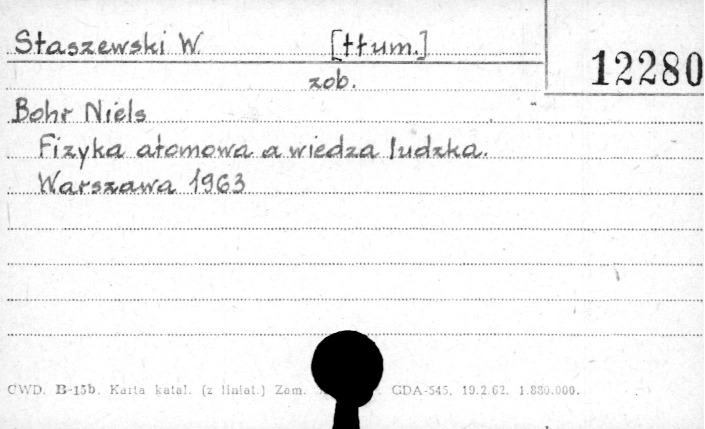 Staszewski W. [tłum.]
12280
zob.
Bohr Niels
Fizyka atomowa a wiedza ludzka.
Warszawa 1963
CWD. B-15b. Karta katal. (z liniat.) Zam. GDA-545. 19.2.62. 1.880.000.